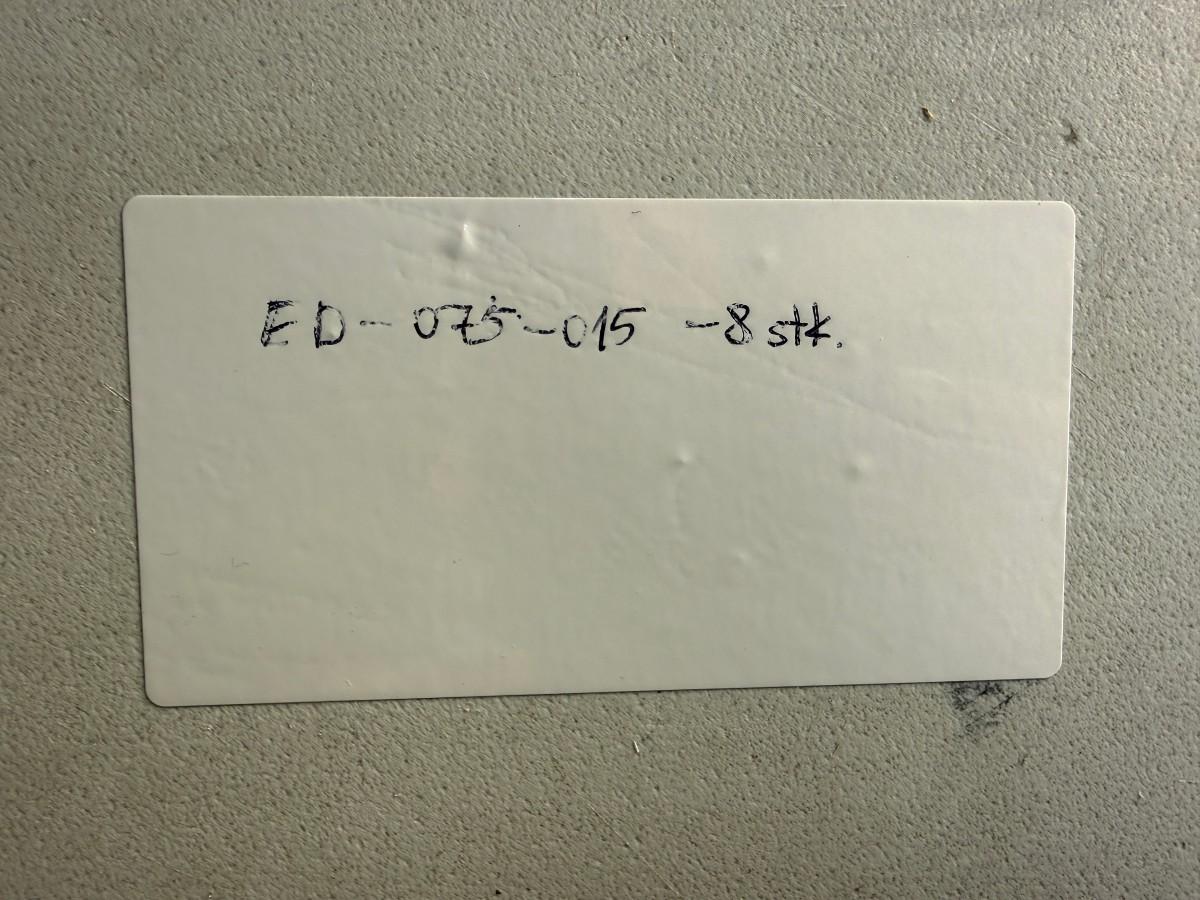 ED-075-015 -8 stk.